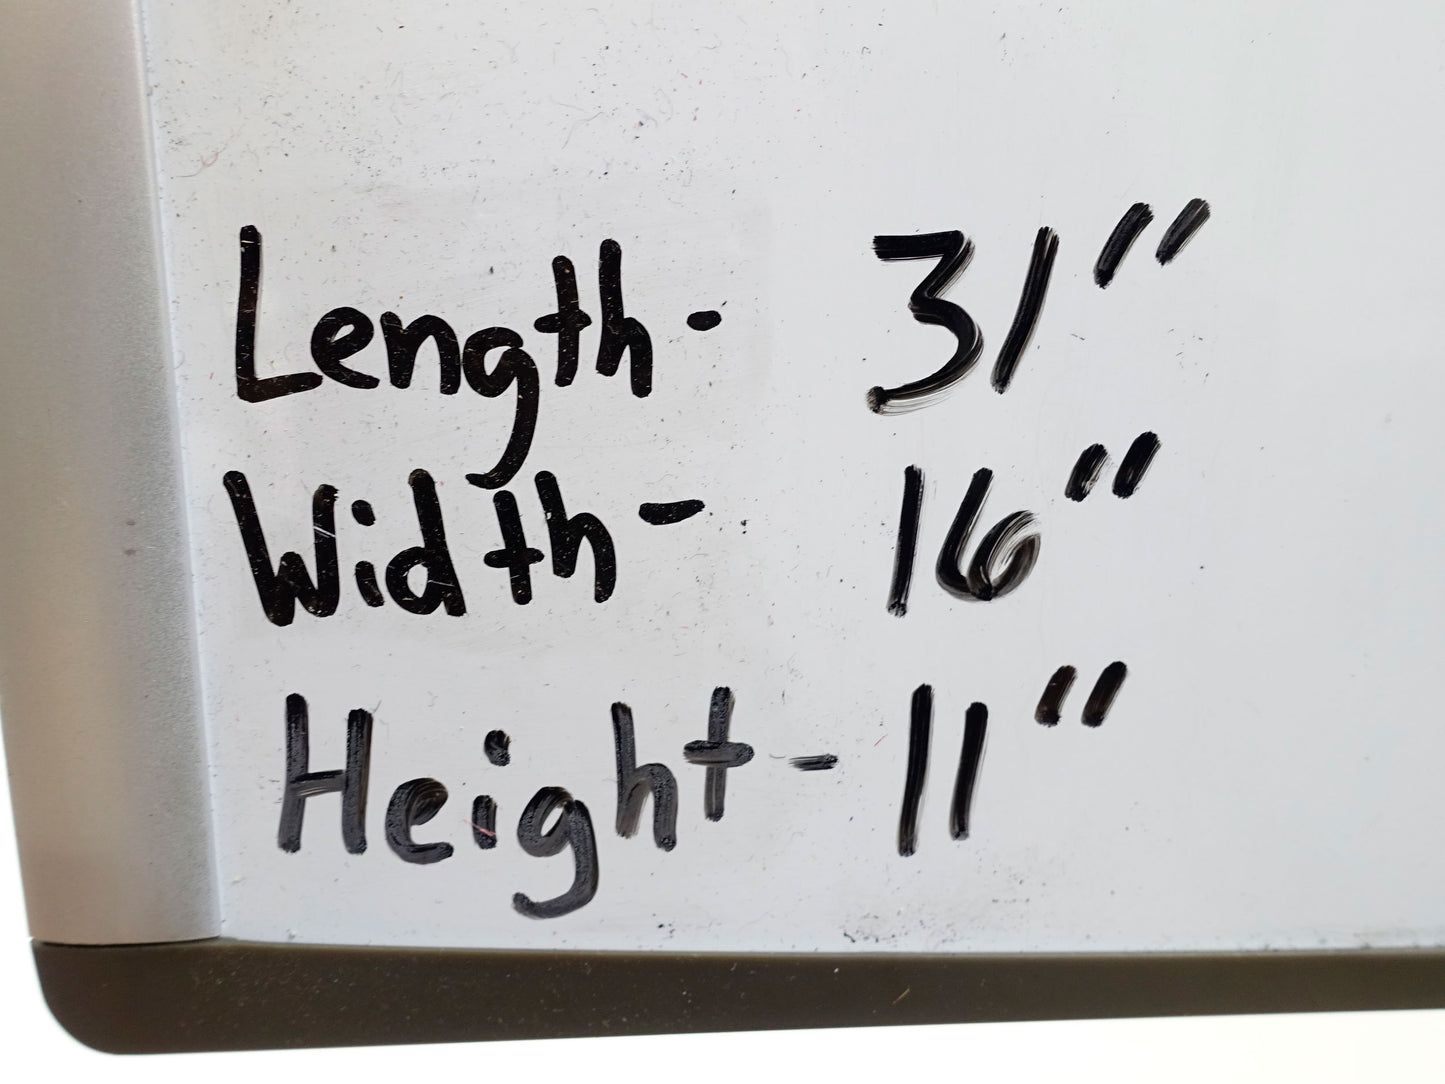 Length- 31"
Width- 16"
Height- 11"